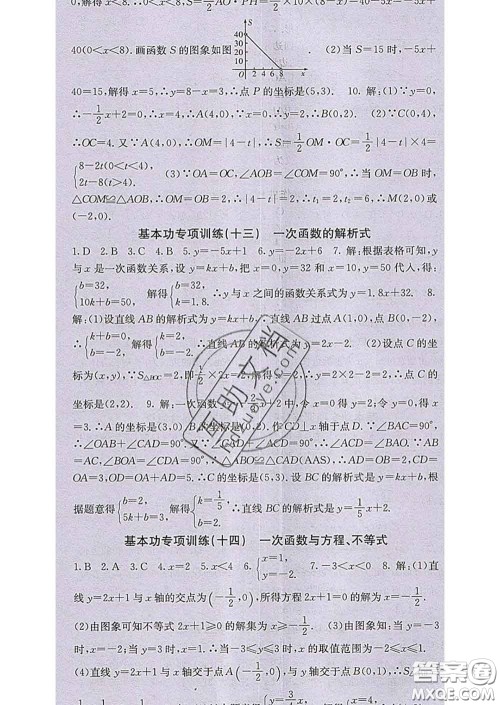 40(0<x<8).画函数 S 的图象如图
S
40
0 2 4 6 8 x
.(2)当 S=15 时,-5x+
40=15,解得 x=5,∴y=8-x=3,∴点 P 的坐标是(5,3). 10. 解:(1)∵y=0,
∴-1/2x+2=0,∴x=4,∴A(4,0),∵x=0,∴y=2,∴B(0,2). (2)∵C(0,4),
∴OC=4.又∵A(4,0),∴OM=|4-t|,∴S=1/2OM·OC=1/2|4-t|×4=
{8-2t(0<t<4), 2t-8(t>4). (3)∵OA=OC,∠AOB=∠COM=90°,∴当 OM=OB 时,
△COM≌△AOB,∴OM=OB=2,∴|4-t|=2,∴t₁=2,t₂=6,∴M(2,0)或
(-2,0).
基本功专项训练(十三) 一次函数的解析式
1.D 2.B 3.C 4.B 5.y=-5x+1 6.y=-2x+6 7.解:根据表格可知,y
与 x 是一次函数关系,设 y=kx+b,把 x=0,y=32 和 x=10,y=50 代入,得:
{b=32, 10k+b=50, 解得{b=32, k=1.8. ∴y 与 x 之间的函数关系式为 y=1.8x+32. 8.
解:(1)设直线 AB 的解析式为 y=kx+b,∵直线 AB 过点 A(1,0),点 B(0,-2),
∴{k+b=0, b=-2, 解得{k=2, b=-2. ∴直线 AB 的解析式为 y=2x-2. (2)设点 C 的坐
标为(x,y),∵S△BOC=2,即1/2×2×x=2,解得 x=2,∴y=2×2-2=2,∴点 C 的
坐标是(2,2). 9.解:一次函数
中,令 x=0 得 y=2;令 y=0,得 x
=3.∴A 的坐标是(3,0)
作 CD⊥x 轴于点 D.∵∠BAC=90°,
∴∠OAB+∠CAD=90°.又∵∠CAD+∠ACD=90°,∴∠ACD=∠BAO.又∵AB=
AC,∠BOA=∠CDA=90°,∴
(AAS),∴AD=OB=2,CD=
OA=3,OD=OA+AD=5.则 C 的坐标是(5,3).设 BC 的解析式是 y=kx+b,根
据题意得{b=2, 5k+b=3, 解得{k=1/5, b=2. ∴直线 BC 的解析式是 y=1/5x+2.
基本功专项训练(十四) 一次函数与方程、不等式
1.B 2.A 3.C 4.x=2 5.x<4 6.{x=1, y=-2. 7.-3<x<0 8.解:(1)直
线 y=2x+1 与 x 轴的交点为(-1/2,0),所得方程 2x+1=0 的解为 x=-1/2.
(2)由图象可知不等式 2x+1≥0 的解集为 x≥-1/2. (3)由图象知:当 y=-3
时,x=-2,当 y=3 时,x=1.∴当-3≤y≤3 时,x 的取值范围为-2≤x≤1.
(4)直线 y=2x+1 与 x 轴交于点 A(-1/2,0),与 y 轴交于点 B(0,1),∴S
答案圈
MXQE.COM